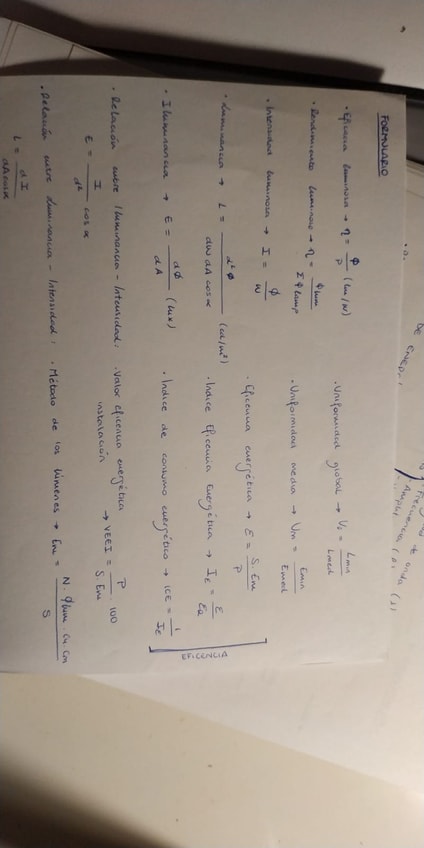 FORMULARIO
· Eficacia luminosa → η = Φ / P (lm/W)
· Rendimiento luminoso → η = Φ lum / Σ Φ lamp
· Intensidad luminosa → I = Φ / W
· Luminancia → L = d²Φ / dw dA cosα (cd/m²)
· Iluminancia → E = dΦ / dA (lux)
· Relación entre Iluminancia - Intensidad:
E = I / d² cosα
· Relación entre Luminancia - Intensidad:
L = dI / dA cosα
· Uniformidad global → U₀ = Lmin / Lmed
· Uniformidad media → Um = Emin / Emed
· Eficiencia energética → E = S. Em / P
· Indice Eficiencia Energética → IE = E / ER
· Indice de consumo energético → ICE = 1 / IE
EFICENCIA
· Valor eficiencia energética
instalación → VEEI = P / S. Em . 100
· Método de los lúmenes → Em = N. Φ lum . Cu. Cm / S